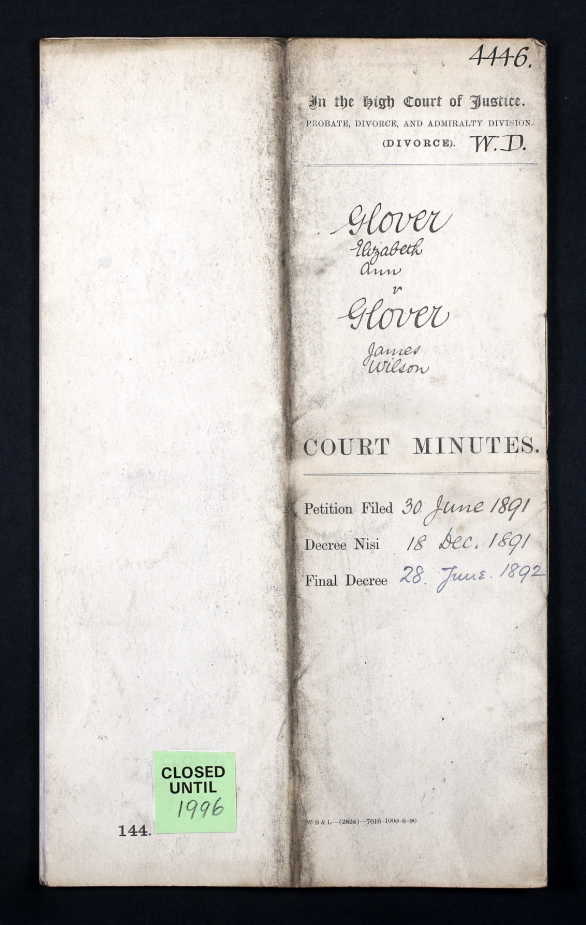 4446.
In the High Court of Justice.
PROBATE, DIVORCE, AND ADMIRALTY DIVISION.
(DIVORCE). W.D.
Glover
Elizabeth
Ann
v
Glover
James
Wilson
COURT MINUTES.
Petition Filed 30 June 1891
Decree Nisi 18 Dec. 1891
Final Decree 28. June. 1892
CLOSED
UNTIL
1996
144.
W B & L—(282s)—7616-1000-6-90